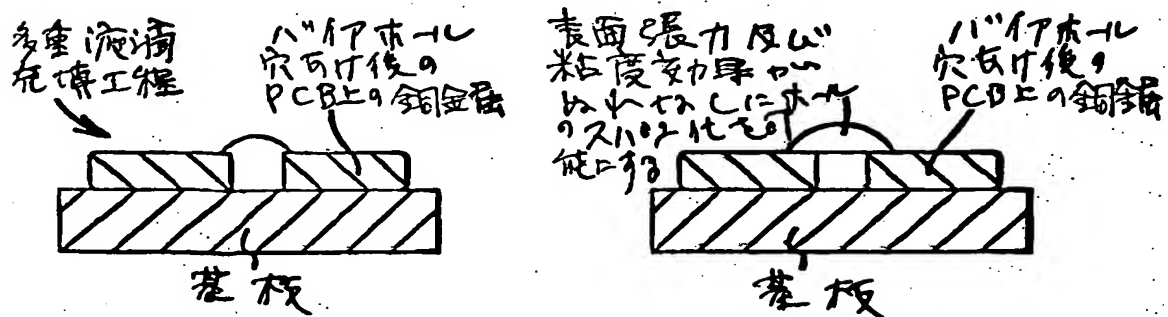 多重液滴
充填工程
バイアホール
穴あけ後の
PCB上の銅金属
基板
表面張力及び
粘度効果が
ぬれなしにホール
のスパン化を可
能にする
バイアホール
穴あけ後の
PCB上の銅金属
基板